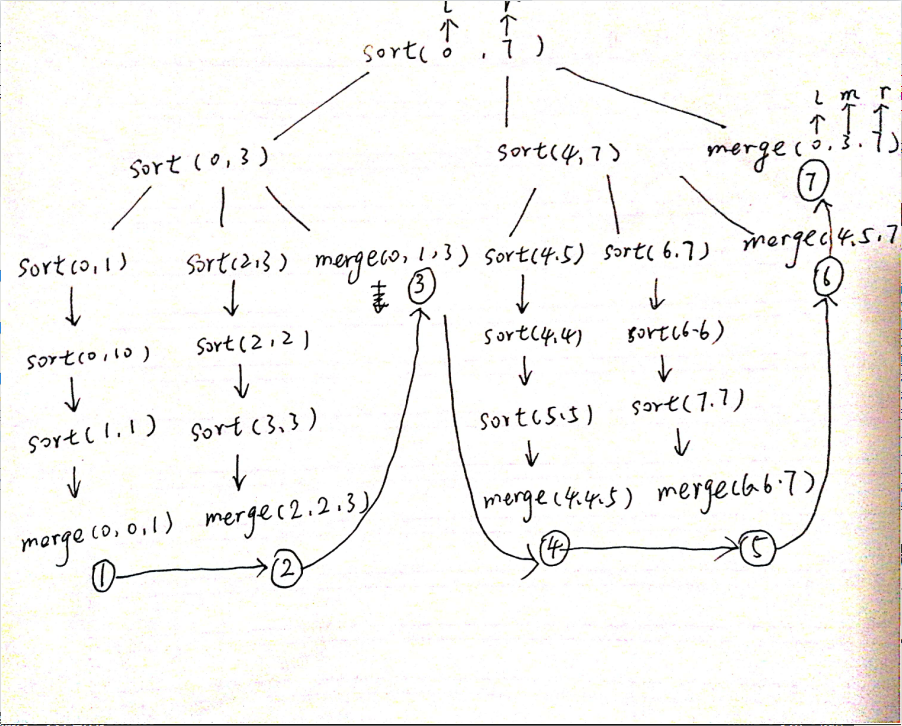 l r
sort( 0 , 7 )
l m r
sort (0,3) sort(4,7) merge(0.3.7)
⑦
sort(0,1) sort(2,3) merge(0,1,3) sort(4.5) sort(6.7) merge(4.5.7
③ ⑥
sort(0,10) sort(2,2) sort(4,4) sort(6-6)
sort(1,1) sort(3,3) sort(5.5) sort(7.7)
merge(0,0,1) merge(2.2.3) merge(4.4.5) merge(6.6.7)
① ② ④ ⑤